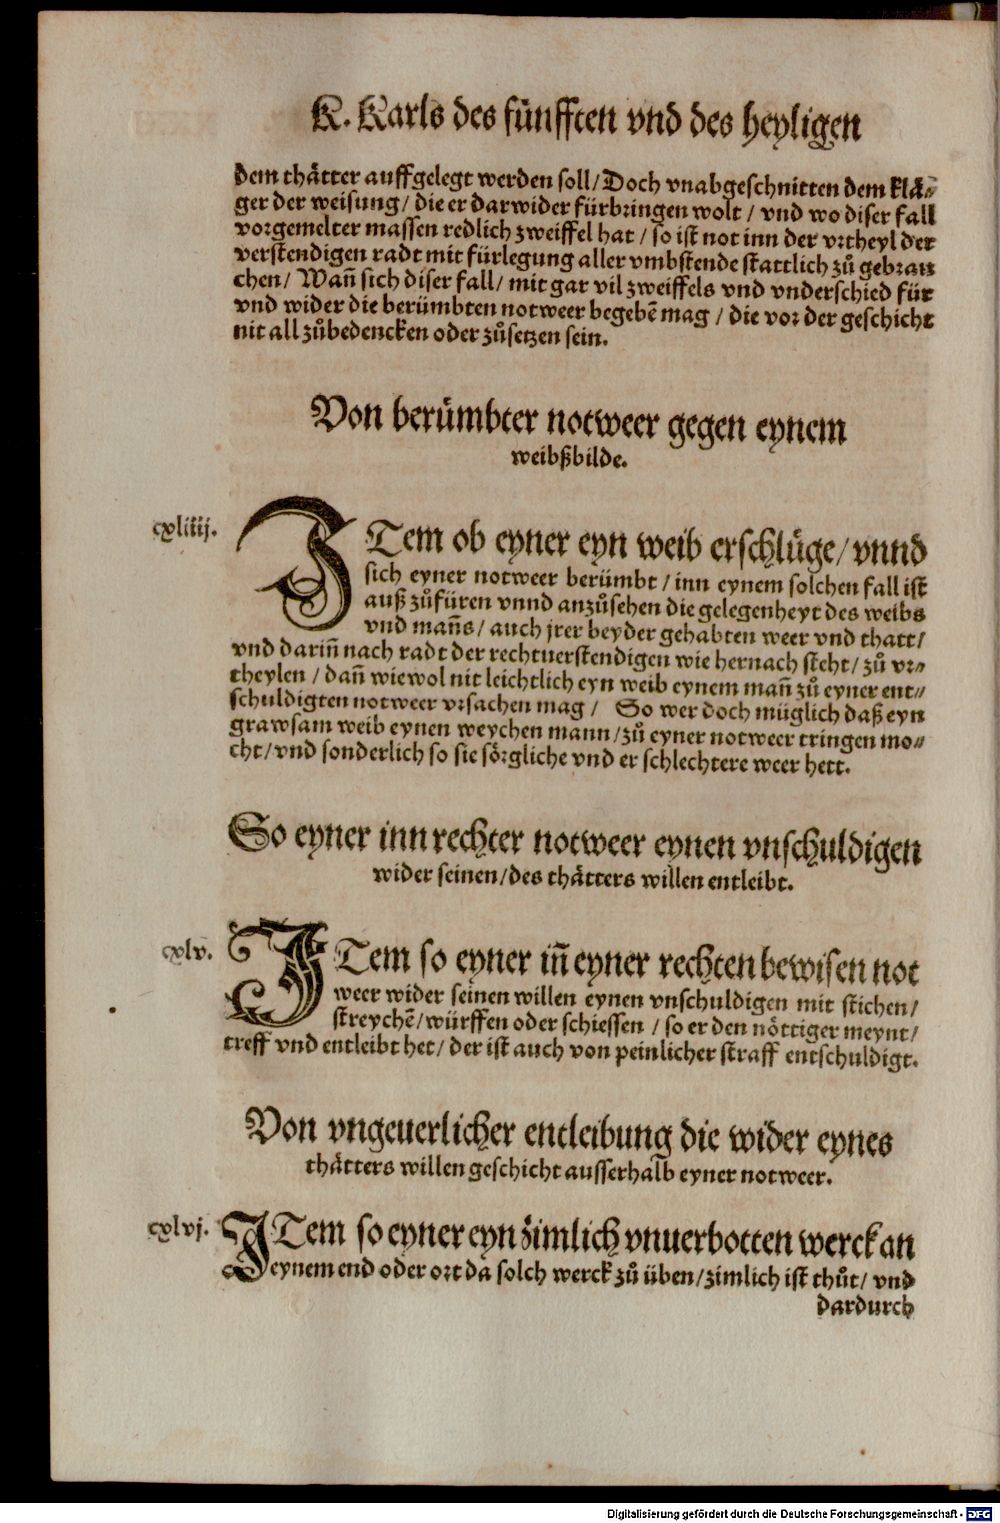 K. Karls des fünfften vnd des heyligen
dem thätter auffgelegt werden soll/ Doch vnabgeschnitten dem klä⸗
ger der weisung/ die er darwider fürbringen wolt / vnd wo diser fall
vorgemelter massen redlich zweiffel hat / so ist not inn der vrtheyl der
verstendigen radt mit fürlegung aller vmbstende stattlich zů gebrau
chen/ Wañ sich diser fall/ mit gar vil zweiffels vnd vnderschied für
vnd wider die berümbten notweer begebē mag / die vor der geschicht
nit all zůbedencken oder zůsetzen sein.
Von berümbter notweer gegen eynem
weibßbilde.
cxliiij.
ITem ob eyner eyn weib erschlüge/ vnnd
sich eyner notweer berümbt / inn eynem solchen fall ist
auß zůfüren vnnd anzůsehen die gelegenheyt des weibs
vnd mañs/ auch jrer beyder gehabten weer vnd thatt/
vnd dariñ nach radt der rechtuerstendigen wie hernach steht/ zů vr⸗
theylen / dañ wiewol nit leichtlich eyn weib eynem mañ zů eyner ent⸗
schuldigten notweer vrsachen mag / So wer doch müglich daß eyn
grawsam weib eynen weychen mann/ zů eyner notweer tringen mo⸗
cht/ vnd sonderlich so sie sörgliche vnd er schlechtere weer hett.
So eyner inn rechter notweer eynen vnschuldigen
wider seinen/ des thätters willen entleibt.
cxlv.
ITem so eyner iñ eyner rechten bewisen not
weer wider seinen willen eynen vnschuldigen mit stichen/
streychē/ würffen oder schiessen / so er den nöttiger meynt/
treff vnd entleibt het/ der ist auch von peinlicher straff entschuldigt.
Von vngeuerlicher entleibung die wider eynes
thätters willen geschicht ausserhalb eyner notweer.
cxlvj.
ITem so eyner eyn zimlich vnuerbotten werck an
eynem end oder ort da solch werck zů üben/ zimlich ist thůt/ vnd
dardurch
Digitalisierung gefördert durch die Deutsche Forschungsgemeinschaft - DFG